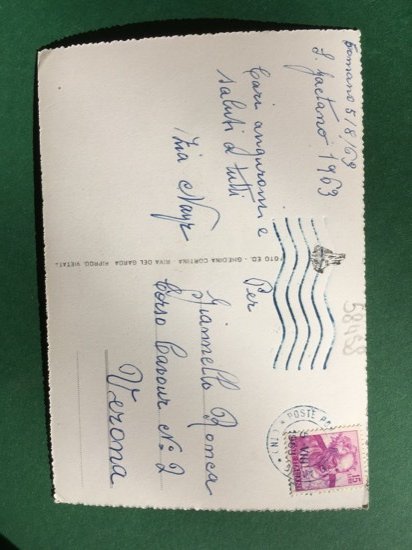 Fornano 5/8/63
S. Gaetano 1963
Cari auguroni e
saluti a tutti
Zia Nayr
FOTO ED. - GHEDINA CORTINA RIVA DEL GARDA RIPROD. VIETAT.
Per
Giannello Ronca
Corso Cavour N. 2
Verona
58458
POSTE
15